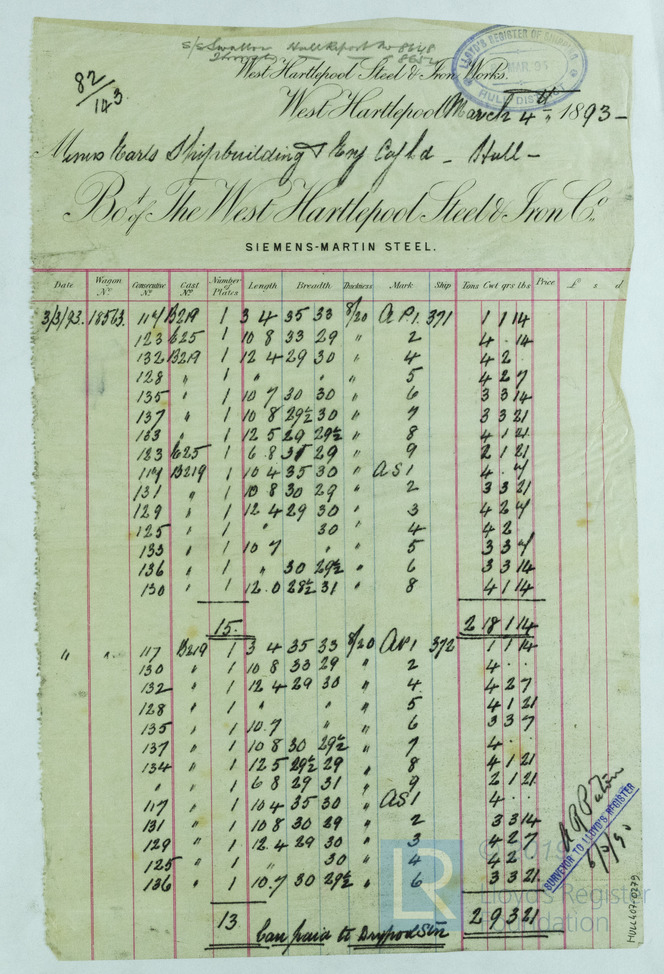 S/S Swallow Hull Report No 8648
82/143
LLOYD'S REGISTER OF SHIPPING
MAR. 93
HULL DIST
West Hartlepool Steel & Iron Works.
West Hartlepool March 4th 1893-
Messrs Earls Shipbuilding & Eng Co Ld - Hull -
Bot. of The West Hartlepool Steel & Iron Co.
SIEMENS-MARTIN STEEL.
Date Wagon No. Consecutive No. Cast No. Number of Plates Length Breadth Thickness Mark Ship Tons Cwt qrs lbs Price £ s d
3/3/93. 18563. 114 B219 1 3 4 35 33 8/20 AP.1. 371 1 1 14
123 625 1 10 8 33 29 " 2 4 . 14
132 B219 1 12 4 29 30 " 4 4 2 .
128 " 1 " " " 5 4 2 7
135 " 1 10 7 30 30 " 6 3 3 14
137 " 1 10 8 29½ 30 " 7 3 3 21
133 " 1 12 5 29 29½ " 8 4 1 21
123 625 1 6 8 31 29 " 9 2 1 21
117 B219 1 10 4 35 30 " AS1 4 . 7
131 " 1 10 8 30 29 " 2 3 3 21
129 " 1 12 4 29 30 " 3 4 2 7
125 " 1 " 30 " 4 4 2 .
133 " 1 10 7 " " 5 3 3 7
136 " 1 " 30 29½ " 6 3 3 14
130 " 1 12.0 28½ 31 " 8 4 1 14
15. 2 18 1 14
" " 117 B219 1 3 4 35 33 8/20 AP1 372 1 1 14
130 " 1 10 8 33 29 " 2 4 . .
132 " 1 12 4 29 30 " 4 4 2 7
128 " 1 " " " 5 4 1 21
135 " 1 10.7 " " 6 3 3 7
137 " 1 10 8 30 29½ " 7 4 . .
134 " 1 12 5 29½ 29 " 8 4 1 21
" " 1 6 8 29 31 " 9 2 1 21
117 " 1 10 4 35 30 " AS1 4 . .
131 " 1 10 8 30 29 " 2 3 3 14
129 " 1 12.4 29 30 " 3 4 2 7
125 " 1 " 30 " 4 4 2 .
136 " 1 10.7 30 29½ " 6 3 3 21
13 2 9 3 21
Carr paid to Drypool Stn
SURVEYOR TO LLOYD'S REGISTER
HULL407-0279
LR
© 2019
Lloyd's Register
Foundation